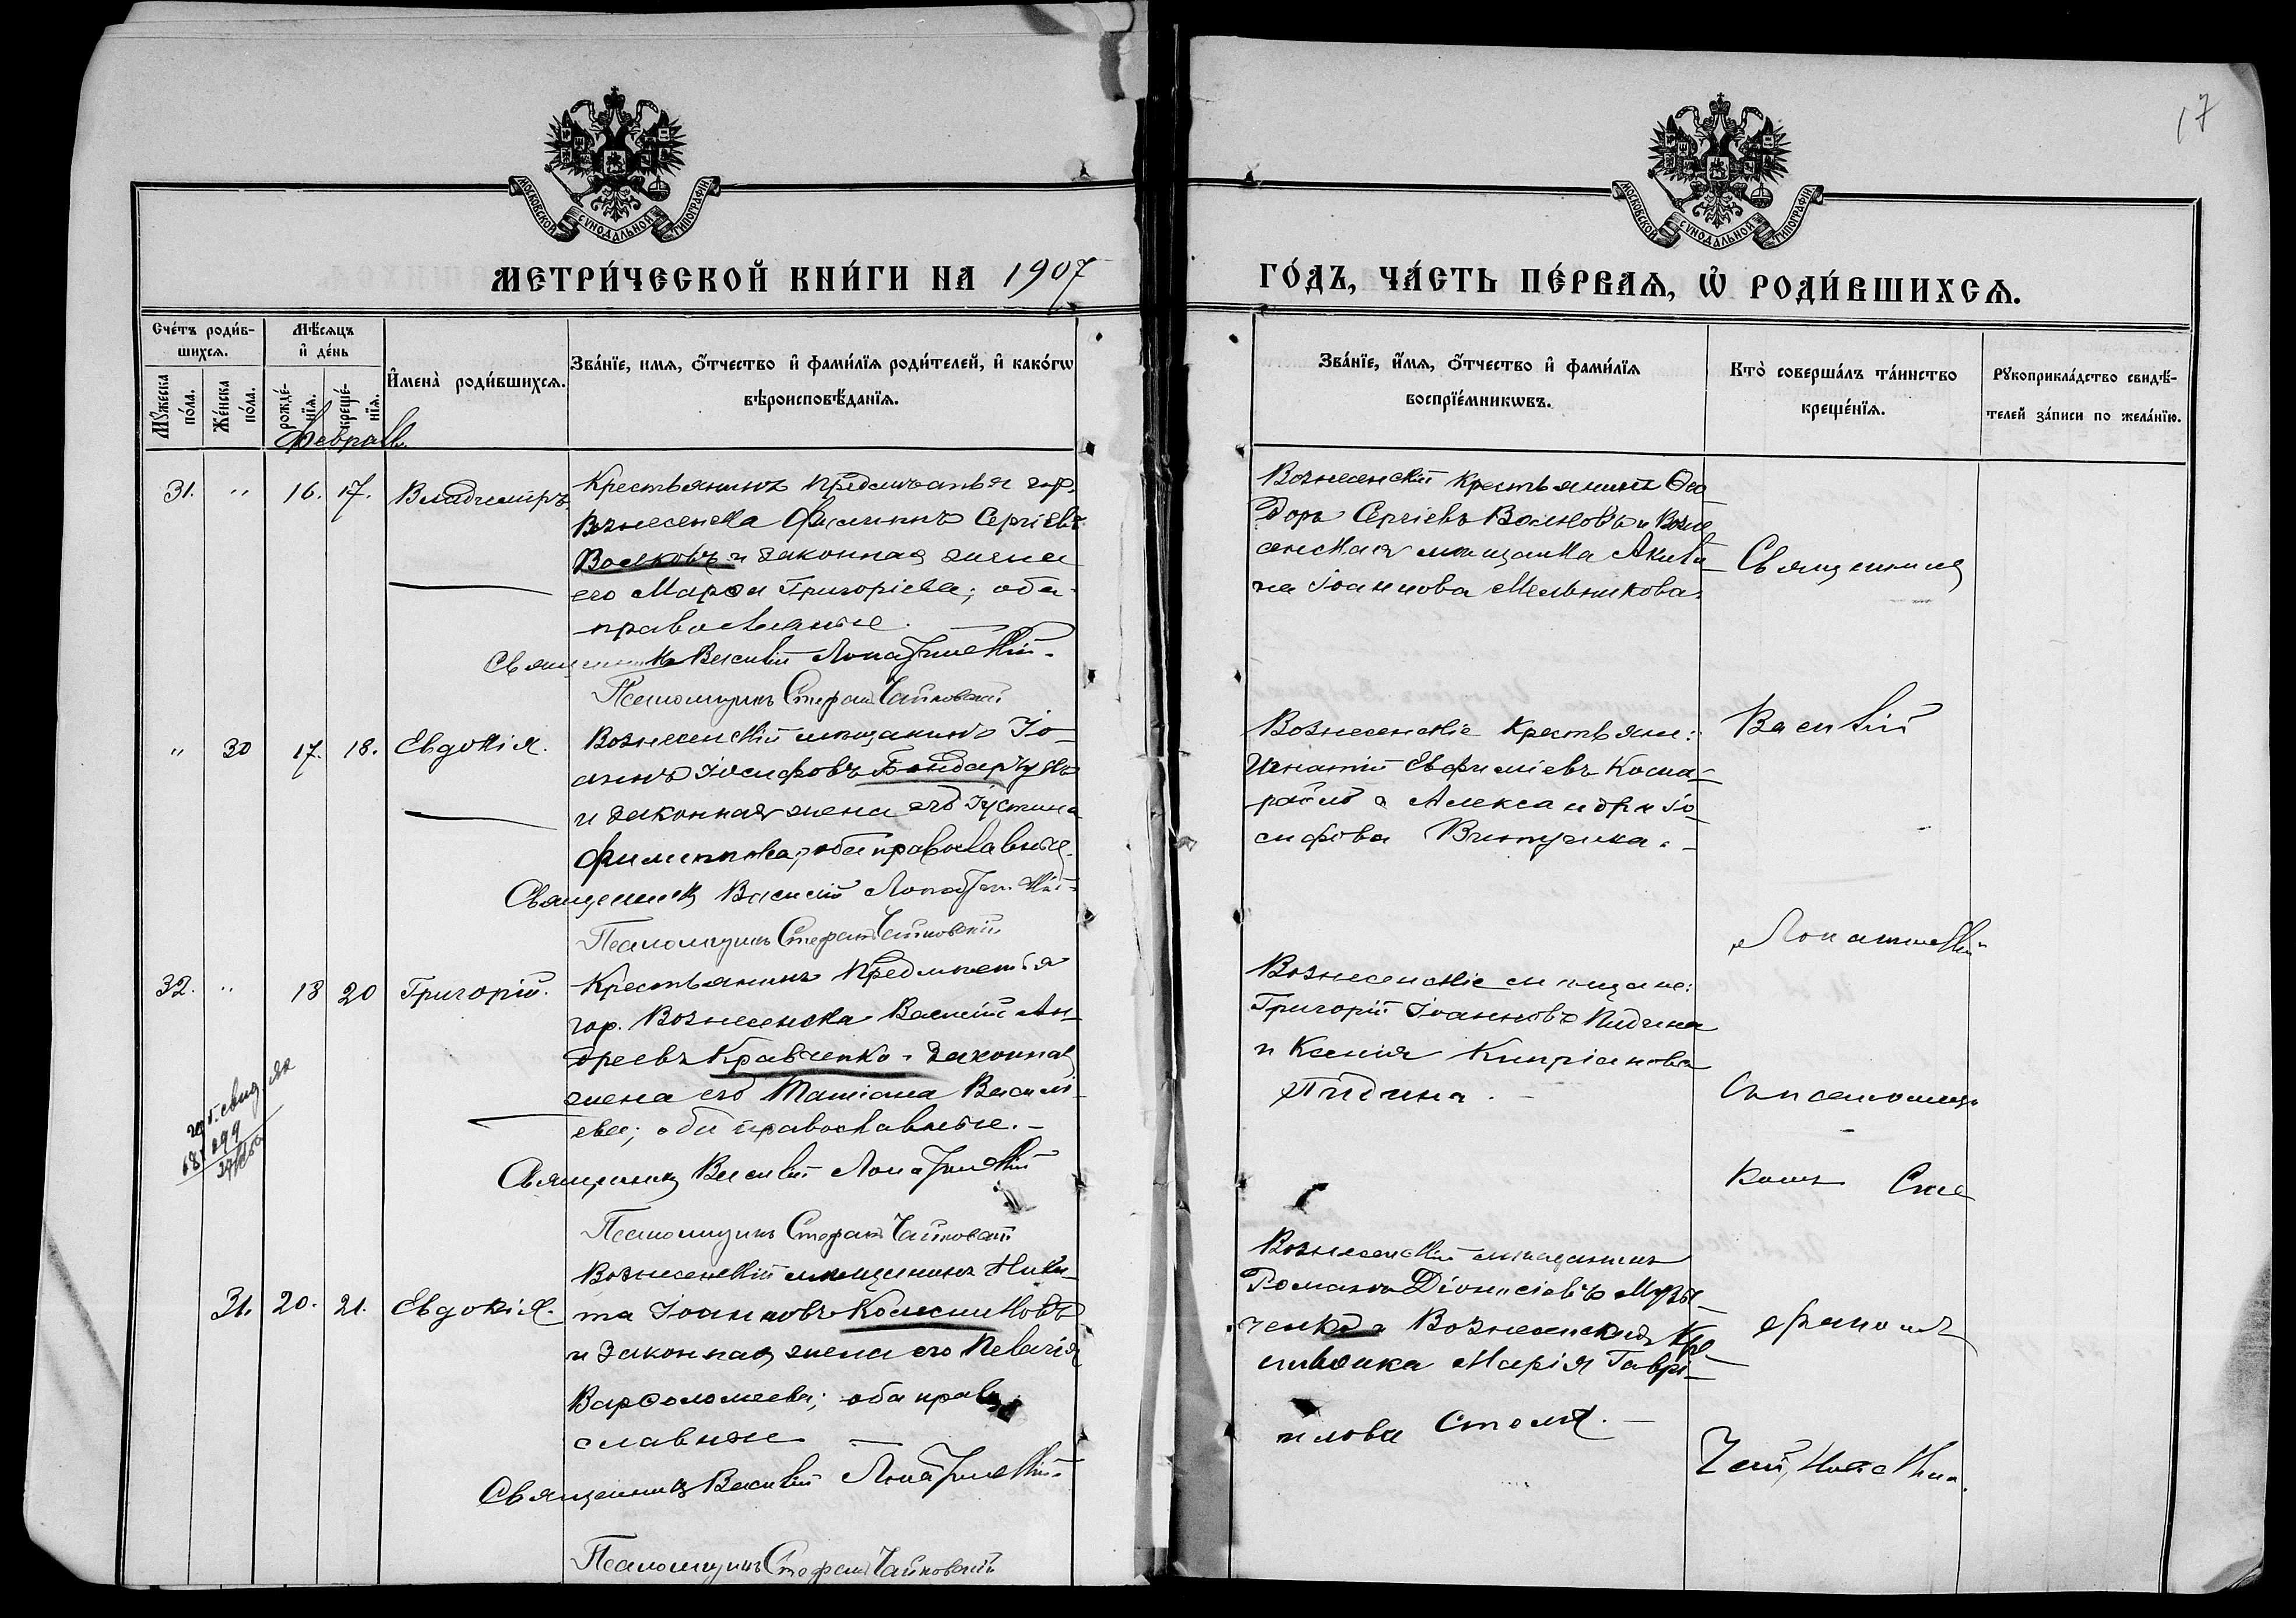 17
МОСКОВСКОЙ СУНОДАЛЬНОЙ ТИПОГРАФІИ
МОСКОВСКОЙ СУНОДАЛЬНОЙ ТИПОГРАФІИ
МЕТРИ́ЧЕСКОЙ КНИ́ГИ НА 1907
ГО́ДЪ, ЧА́СТЬ ПЕ́РВАѦ, Ѡ҆ РОДИ́ВШИХСѦ.
Сче́тъ роди́в-
шихсѧ.
Мѣ́сѧцъ
и҆ де́нь
Мꙋ́жеска
по́ла.
Же́нска
по́ла.
рожде́-
нїѧ.
креще́-
нїѧ.
И҆мена̀ роди́вшихсѧ.
Зва́нїе, имѧ, ѻ҆́тчество и҆ фами́лїѧ роди́телей, и҆ како́гѡ
вѣроисповѣ́данїѧ.
Зва́нїе, и҆́мѧ, ѻ҆́тчество и҆ фами́лїѧ
воспрїе́мникѡвъ.
Кто̀ соверша́лъ та́инство
креще́нїѧ.
Рꙋкоприкла́дство свидѣ́-
телей за́писи по жела́нїю.
Февраль.
31. " 16. 17. Владимиръ
Крестьянинъ предмѣстья гор.
Вознесенска Филиппъ Сергіевъ
Волковъ и законная жена
его Марѳа Григоріева; оба
православные.
Священникъ Василій Лопатинскій.
Псаломщикъ Стефанъ Чайковскій
Вознесенскій крестьянинъ Ѳео
доръ Сергіевъ Волковъ и Возне
сенская мѣщанка Акили
на Іоаннова Мельникова.
" 30 17. 18. Евдокія.
Вознесенскій мѣщанинъ Іо-
аннъ Іосифовъ Бондарчукъ
и законная жена его Іустина
Филиппова; оба православные.
Священникъ Василій Лопатинскій
Псаломщикъ Стефанъ Чайковскій
Вознесенскіе крестьяне:
Игнатій Евфиміевъ
и Александра Іо-
сифова
32. " 18 20 Григорій.
Крестьянинъ предмѣстья
гор. Вознесенска Василій Ан-
дреевъ Кравченко и законная
жена его Татіана Василі-
ева; оба православные. -
Священникъ Василій Лопатинскій
Псаломщикъ Стефанъ Чайковскій
Вознесенскіе мѣщане:
Григорій Іоанновъ
и Ксенія Кипріанова
31. 20. 21. Евдокія.
Вознесенскій мѣщанинъ Ники-
та Іоанновъ Колесниковъ
и законная жена его Пелагія
Варѳоломеева; оба право
славные
Священникъ Василій Лопатинскій.
Псаломщикъ Стефанъ Чайковскій
Вознесенскій мѣщанинъ
Романъ Діонисіевъ Музы-
ченко и Вознесенская
Марія Гаврі-
илова
Священникъ
Василій
Лопатинскій
Съ псаломщи
комъ Сте
фаномъ
Чайковскимъ.